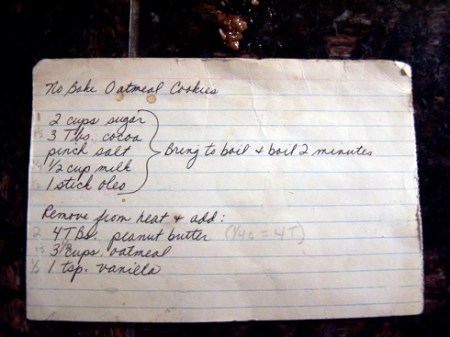 No Bake Oatmeal Cookies
2 cups sugar
3 Tbs. cocoa
pinch salt
1/2 cup milk
1 stick oleo
Bring to boil & boil 2 minutes
Remove from heat & add:
4 TBs. peanut butter (1/4c = 4T)
3 cups oatmeal
1 tsp. vanilla